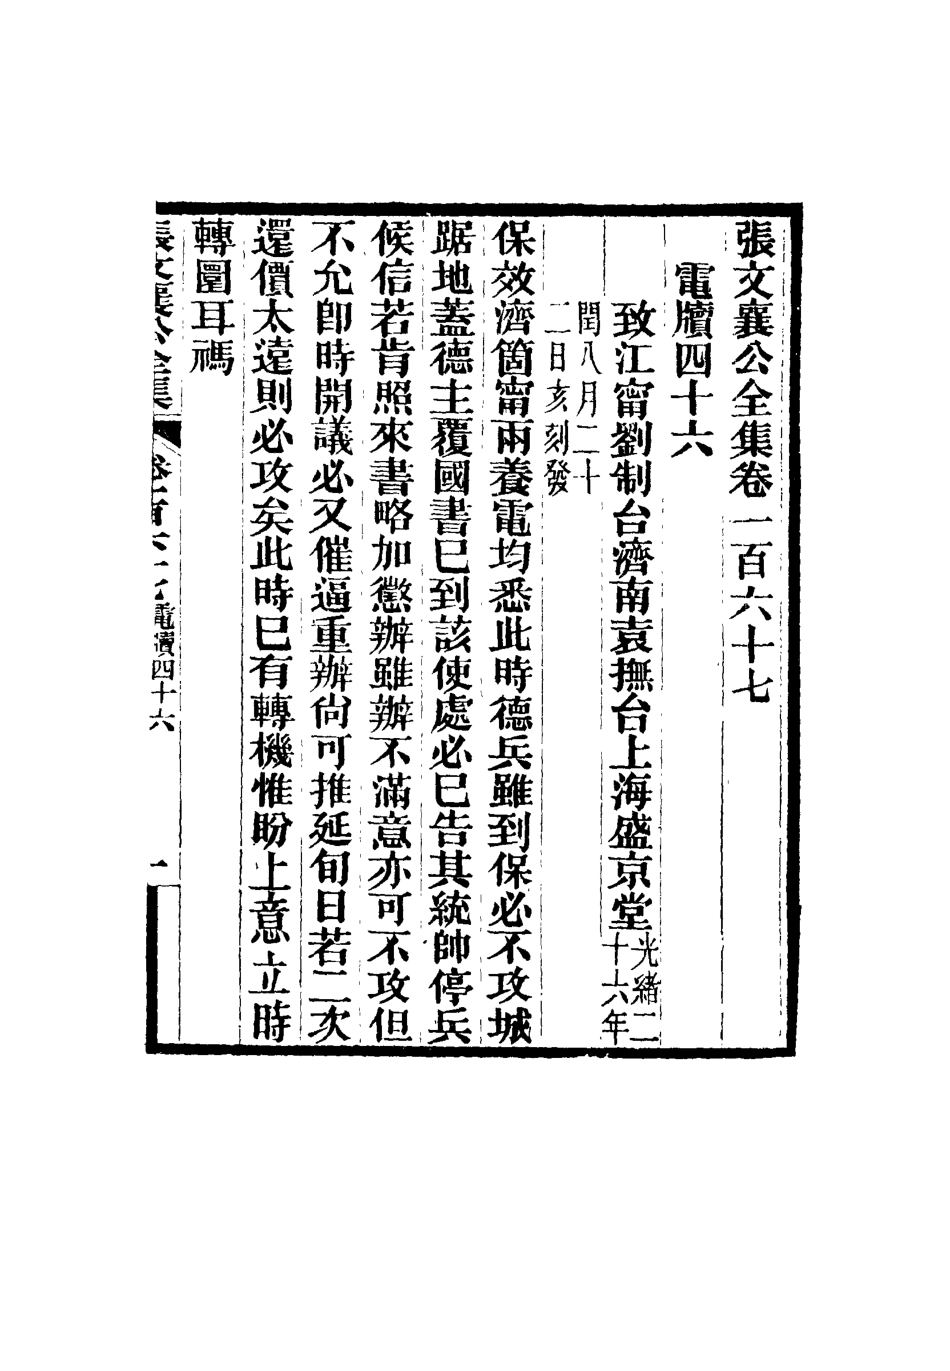 張文襄公全集卷一百六十七
電牘四十六
致江甯劉制台濟南袁撫台上海盛京堂光緒二十六年
閏八月二十二日亥刻發
保效濟箇甯兩養電均悉此時德兵雖到保必不攻城
踞地蓋德主覆國書已到該使處必已告其統帥停兵
候信若肯照來書略加懲辦雖辦不滿意亦可不攻但
不允卽時開議必又催逼重辦尙可推延旬日若二次
還價太遠則必攻矣此時已有轉機惟盼上意立時
轉圜耳禡
張文襄公全集 卷一百六十七 電牘四十六 一